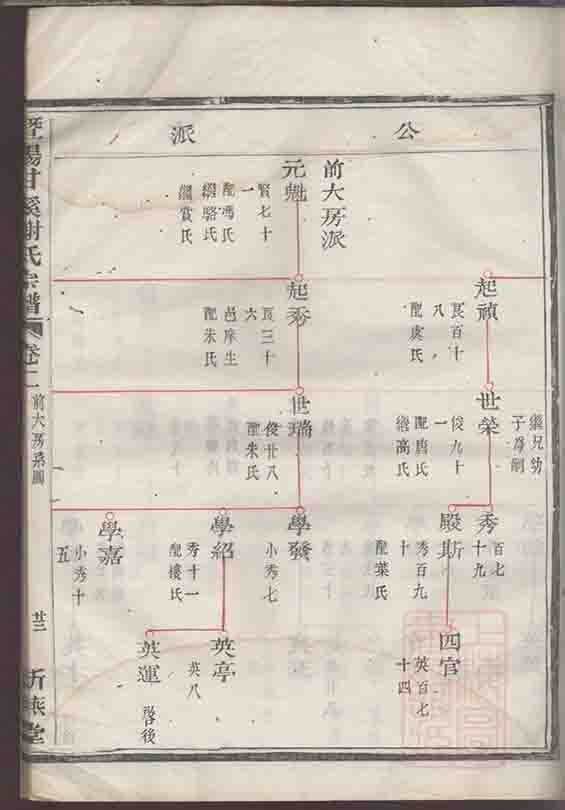 公派
前大房派
元魁
賢七十
一
配馮氏
繼駱氏
繼賞氏
起禎
艮百十
八
配虞氏
起秀
艮三十
六
邑庠生
配朱氏
世榮
繼兄幼
子爲嗣
俊九十
一
配唐氏
繼高氏
世瑞
俊廿八
配朱氏
秀
百七
十九
殿斯
秀百九
十
配葉氏
學發
小秀七
學紹
秀十一
配樓氏
學嘉
小秀十
五
四官
英百七
十四
英亭
英八
英運
啓後
暨陽甘溪謝氏宗譜
卷二
前大房系圖
廿二